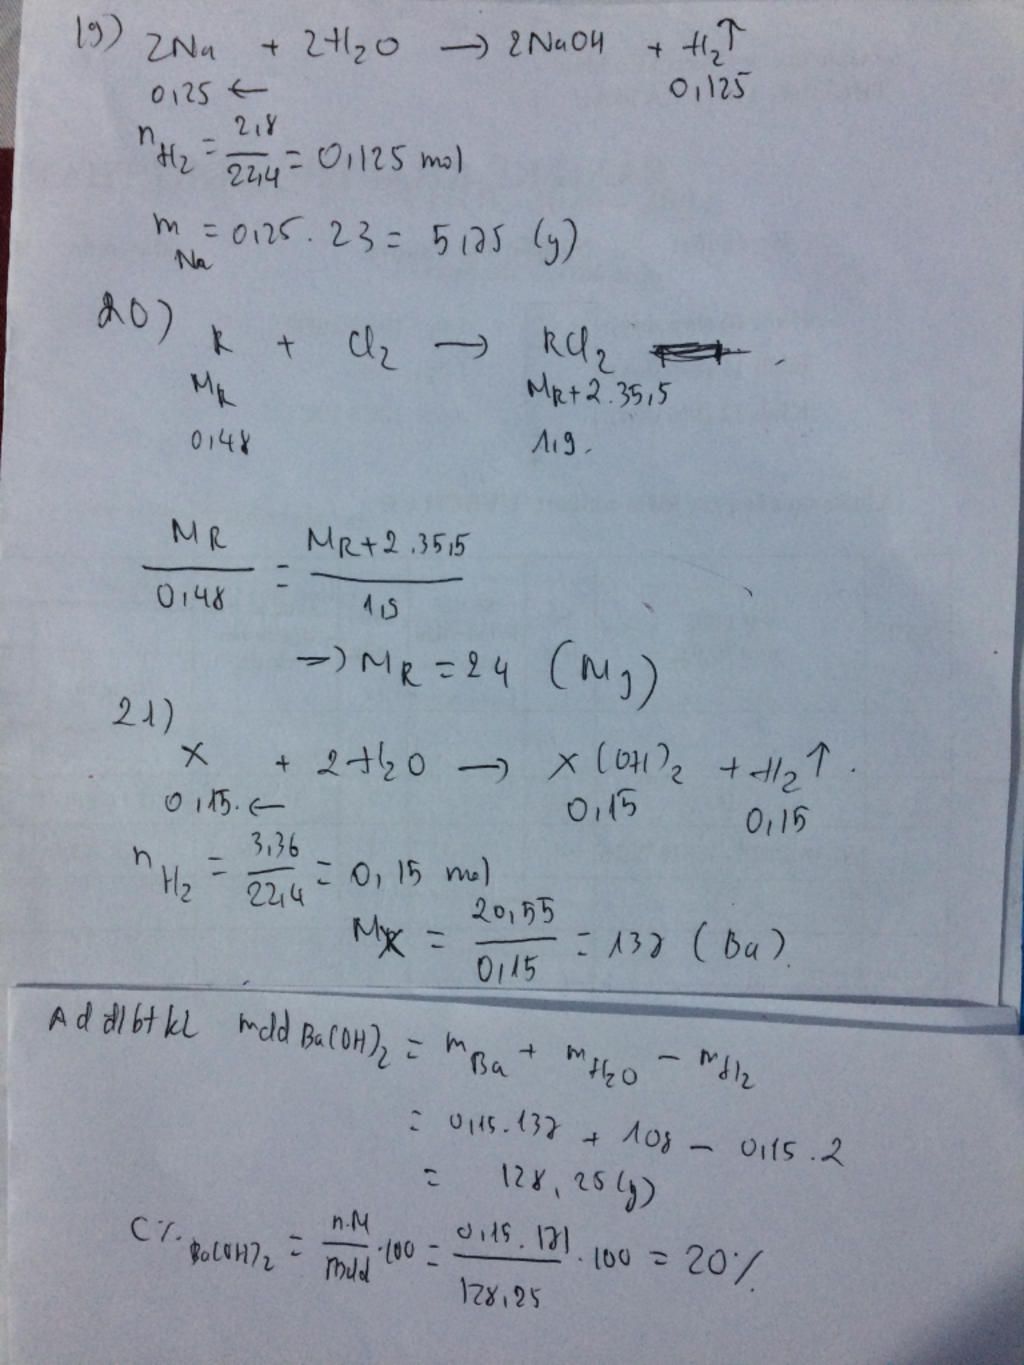 19) 2Na + 2H2O → 2NaOH + H2↑
0,25 ← 0,125
nH2 = 2,8/22,4 = 0,125 mol
mNa = 0,25 . 23 = 5,75 (g)
20) R + Cl2 → RCl2
MR MR+2.35,5
0,48 1,9.
MR/0,48 = MR+2.35,5/1,9
=> MR = 24 (Mg)
21) X + 2H2O → X(OH)2 + H2↑.
0,15. ← 0,15 0,15
nH2 = 3,36/22,4 = 0,15 mol
MX = 20,55/0,15 = 137 (Ba).
Ad đlbtkl mdd Ba(OH)2 = mBa + mH2O − mH2
= 0,15.137 + 108 − 0,15.2
= 128,25 (g)
C% Ba(OH)2 = n.M/mdd .100 = 0,15.171/128,25 . 100 = 20%